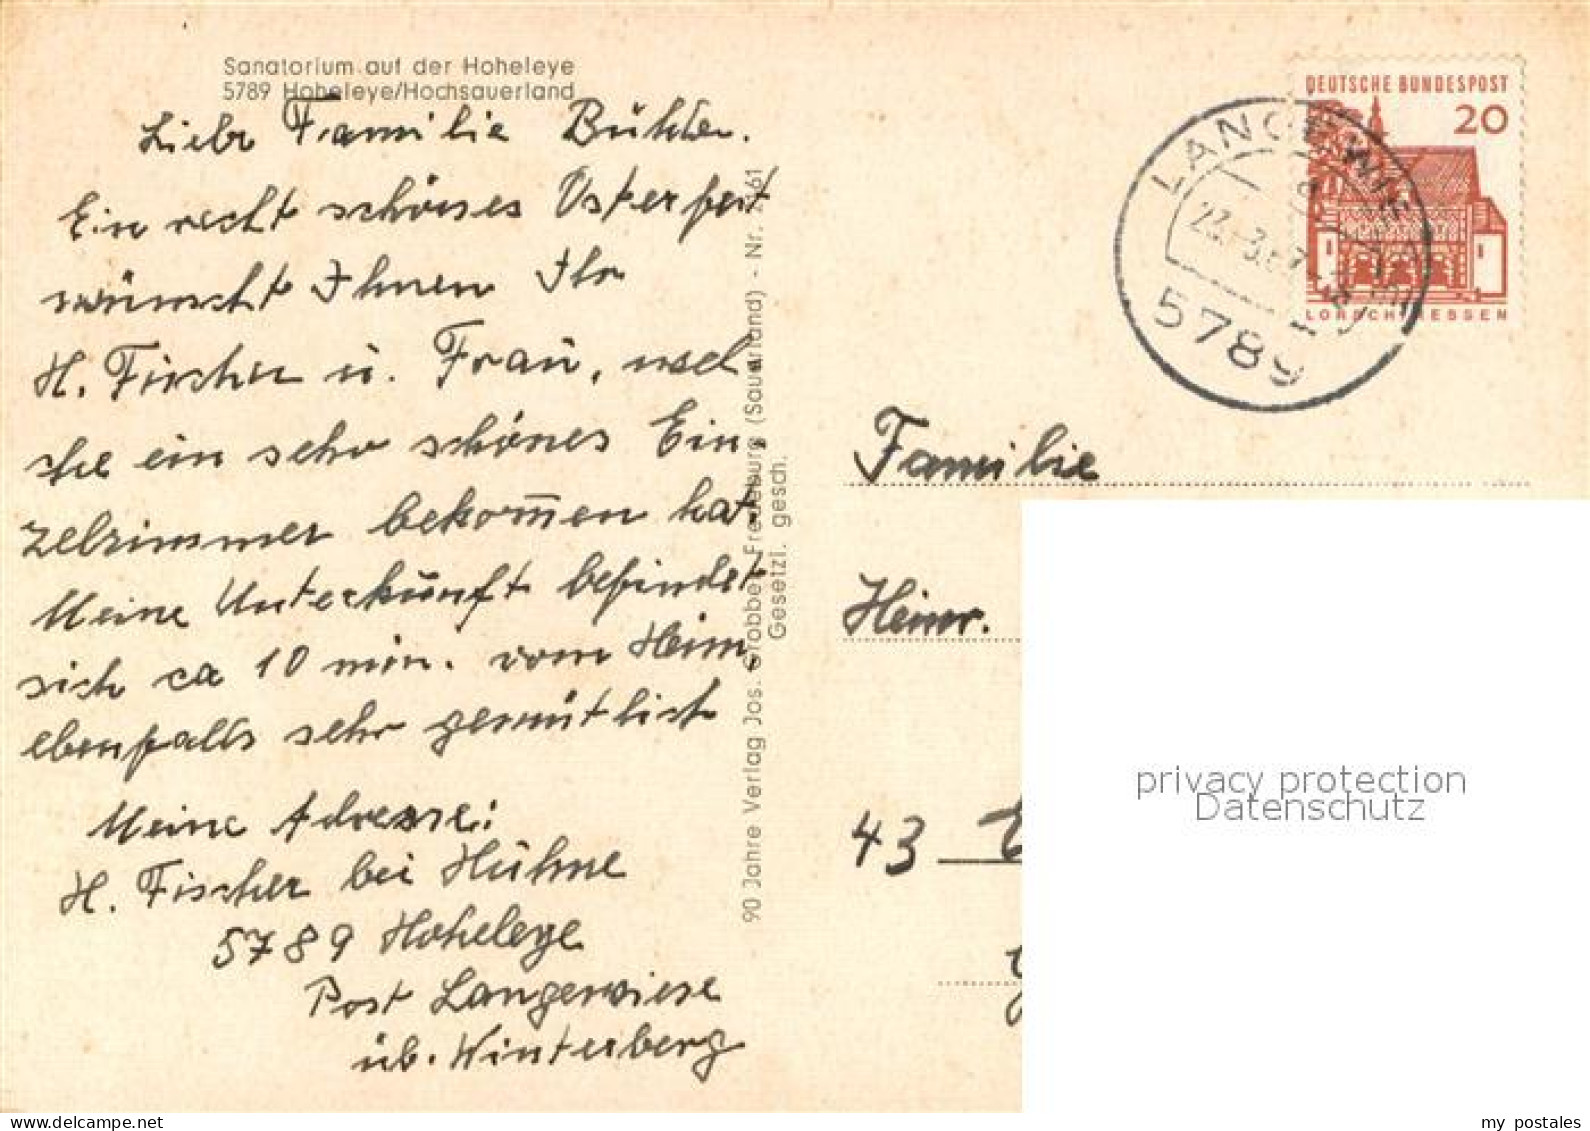 Sanatorium auf der Hoheleye
5789 Hoheleye/Hochsauerland
Liebe Familie
Ein recht schönes Osterfest
wünscht Ihnen Ihr
H. Fischer u. Frau, wel
che ein sehr schönes Ein
zelzimmer bekom̅en hat.
Meine Unterkunft befindet
sich ca 10 min. vom Heim,
ebenfalls sehr gemütlich
Meine Adresse:
H. Fischer bei Hühne
5789 Hoheleye
Post Langewiese
üb. Winterberg
90 Jahre Verlag Jos. Grobbel, Fredeburg (Sauerland) - Nr.
Gesetzl. gesch.
DEUTSCHE BUNDESPOST
20
LORSCH/HESSEN
LANGEWIESE
5789
Familie
Heinr.
43
privacy protection
Datenschutz
my postales